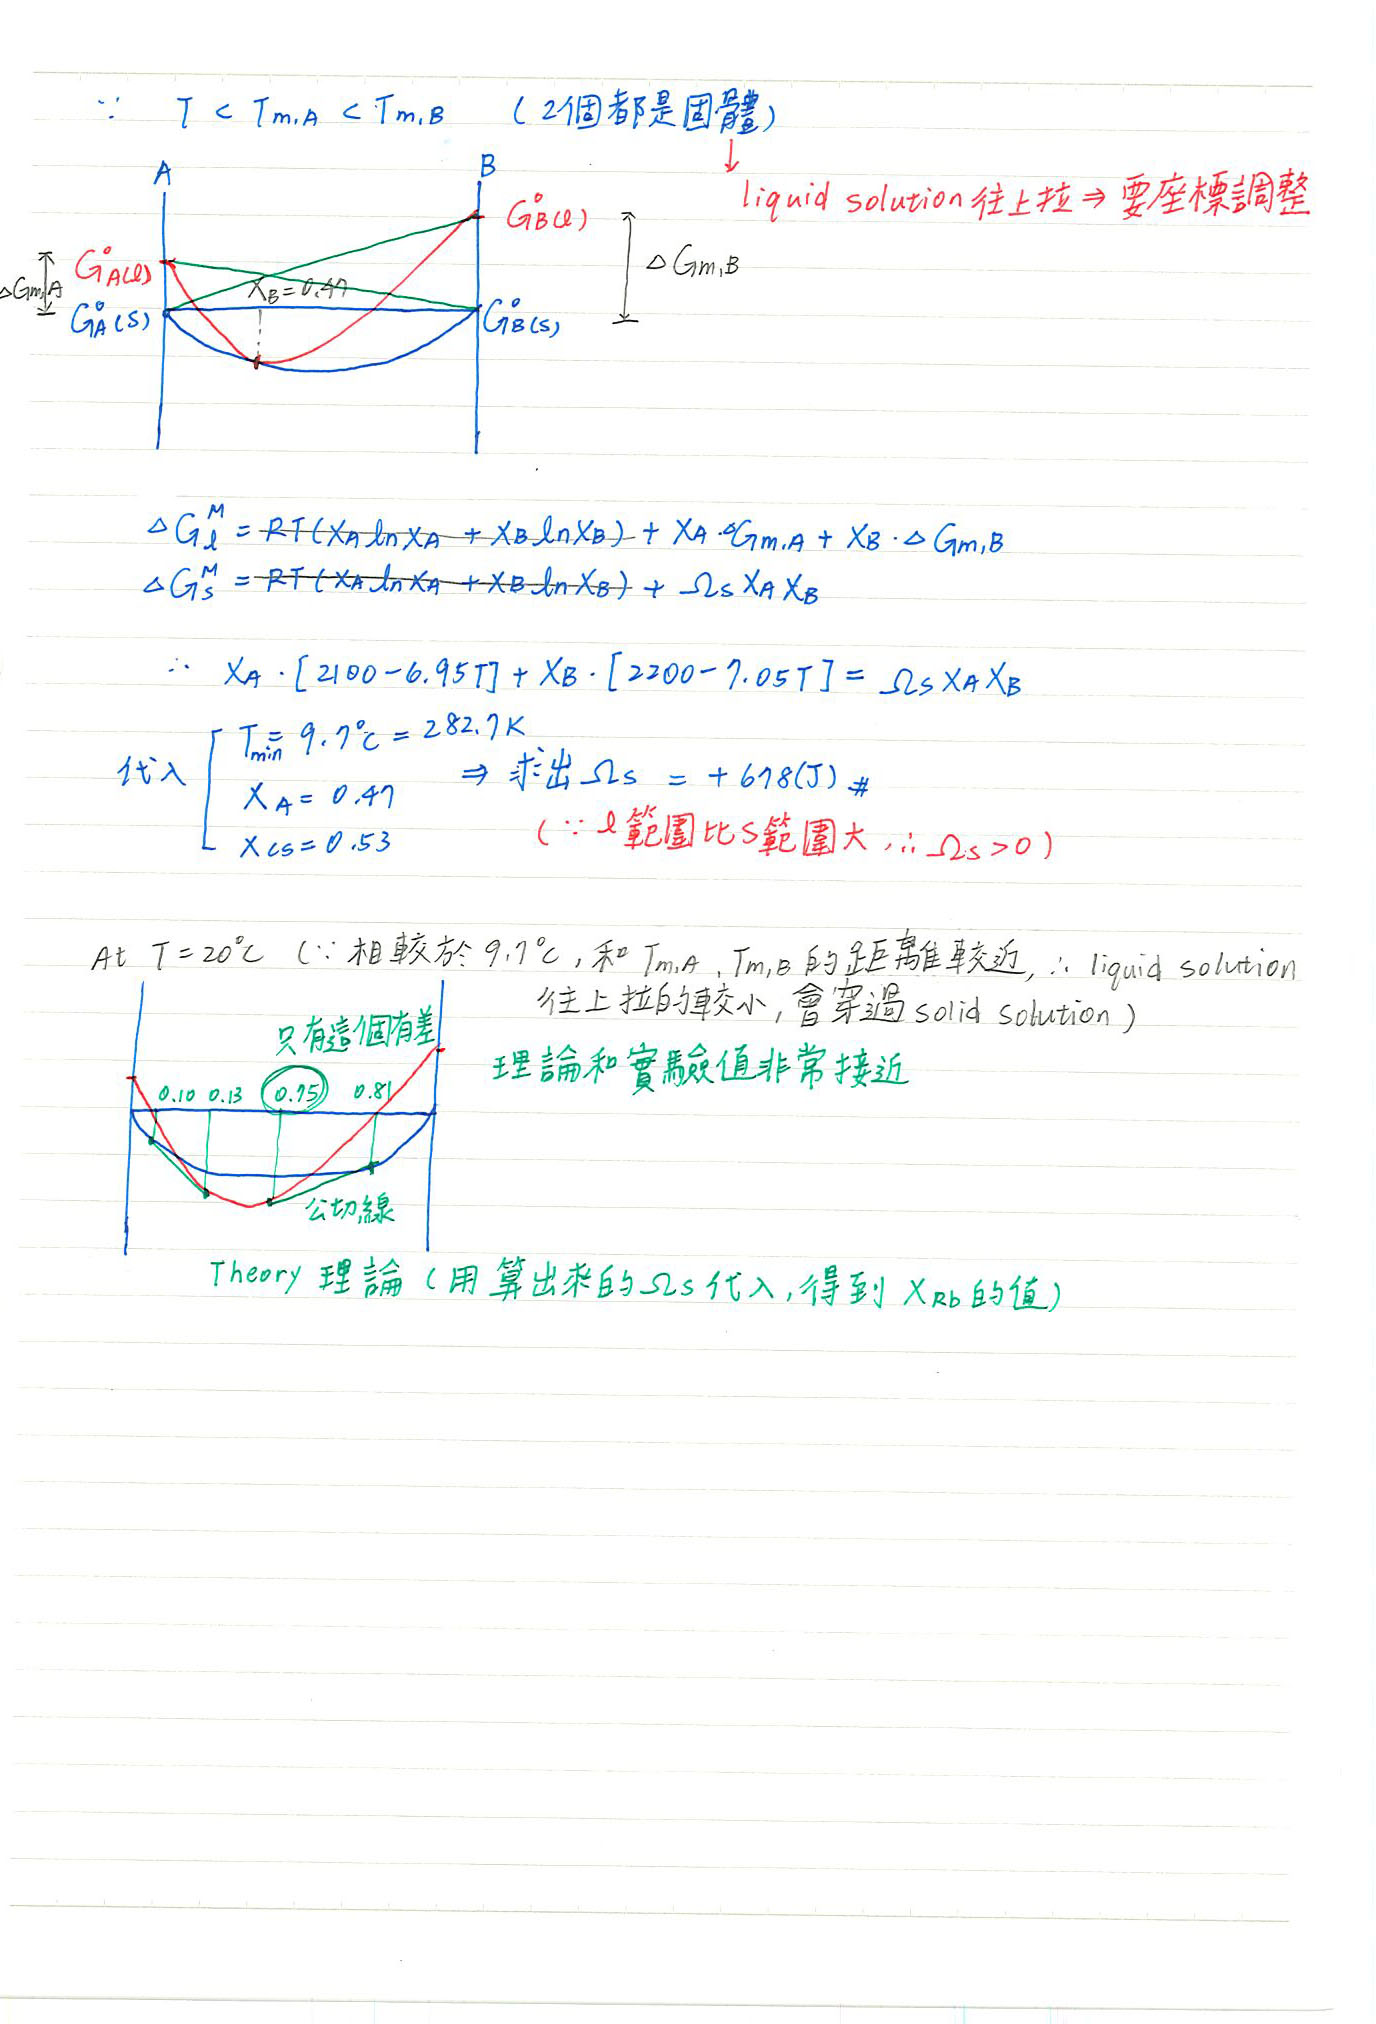 ∵ T < Tm,A < Tm,B (2個都是固體)
↓
liquid solution 往上拉 ⇒ 要座標調整
A B
G°B(l)
G°A(l)
ΔGm,A
G°A(s)
XB = 0.47
G°B(s)
ΔGm,B
ΔGlM = RT(XA ln XA + XB ln XB) + XA·ΔGm,A + XB·ΔGm,B
ΔGsM = RT(XA ln XA + XB ln XB) + Ωs XA XB
∴ XA·[2100-6.95T] + XB·[2200-7.05T] = Ωs XA XB
代入 Tmin = 9.7°C = 282.7K
XA = 0.47 ⇒ 求出 Ωs = +678(J) #
Xcs = 0.53 (∵ l 範圍比 s 範圍大, ∴ Ωs > 0)
At T = 20°C (∵ 相較於 9.7°C, 和 Tm,A、Tm,B 的距離較近, ∴ liquid solution
往上拉的較小, 會穿過 solid solution)
只有這個有差
理論和實驗值非常接近
0.10 0.13 0.75 0.81
公切線
Theory 理論 (用算出來的 Ωs 代入, 得到 XRb 的值)